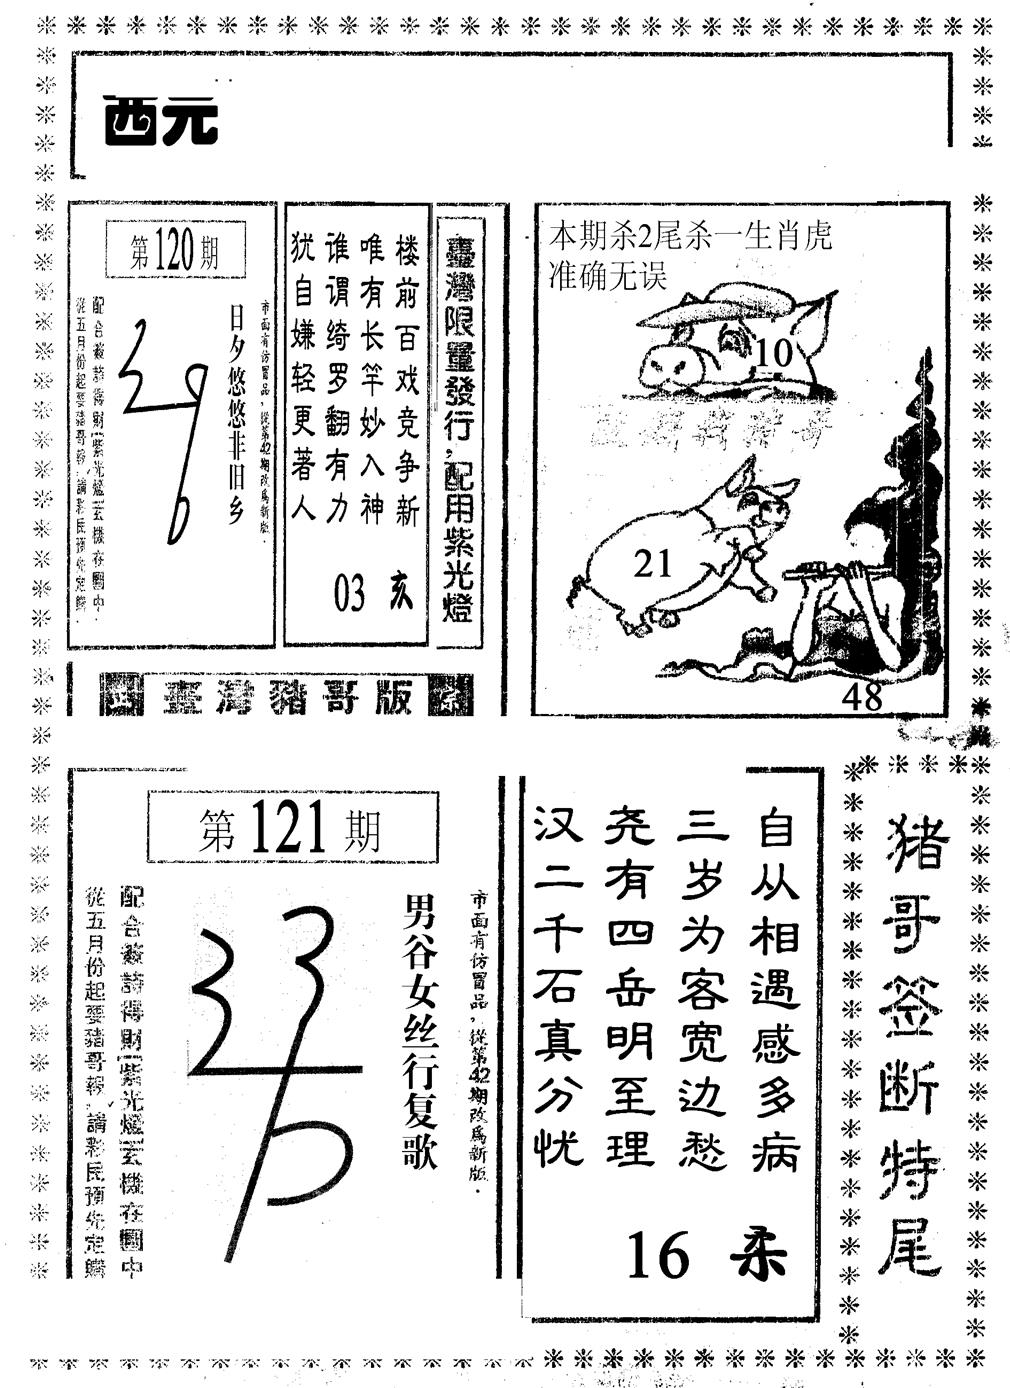 西元
第120期
市面有仿冒品，從第42期改爲新版．
日夕悠悠非旧乡
配合簽詩得財紫光燈玄機在圖中．
從五月份起要豬哥報．請彩民預先定購．
楼前百戏竞争新
唯有长竿妙入神
谁谓绮罗翻有力
犹自嫌轻更著人
03 亥
臺灣限量發行，配用紫光燈
臺灣豬哥版
本期杀2尾杀一生肖虎
准确无误
10
21
48
第121期
市面有仿冒品，從第42期改爲新版．
男谷女丝行复歌
配合簽詩得財紫光燈玄機在圖中
從五月份起要豬哥報．請彩民預先定購
自从相遇感多病
三岁为客宽边愁
尧有四岳明至理
汉二千石真分忧
16 柔
猪哥签断特尾